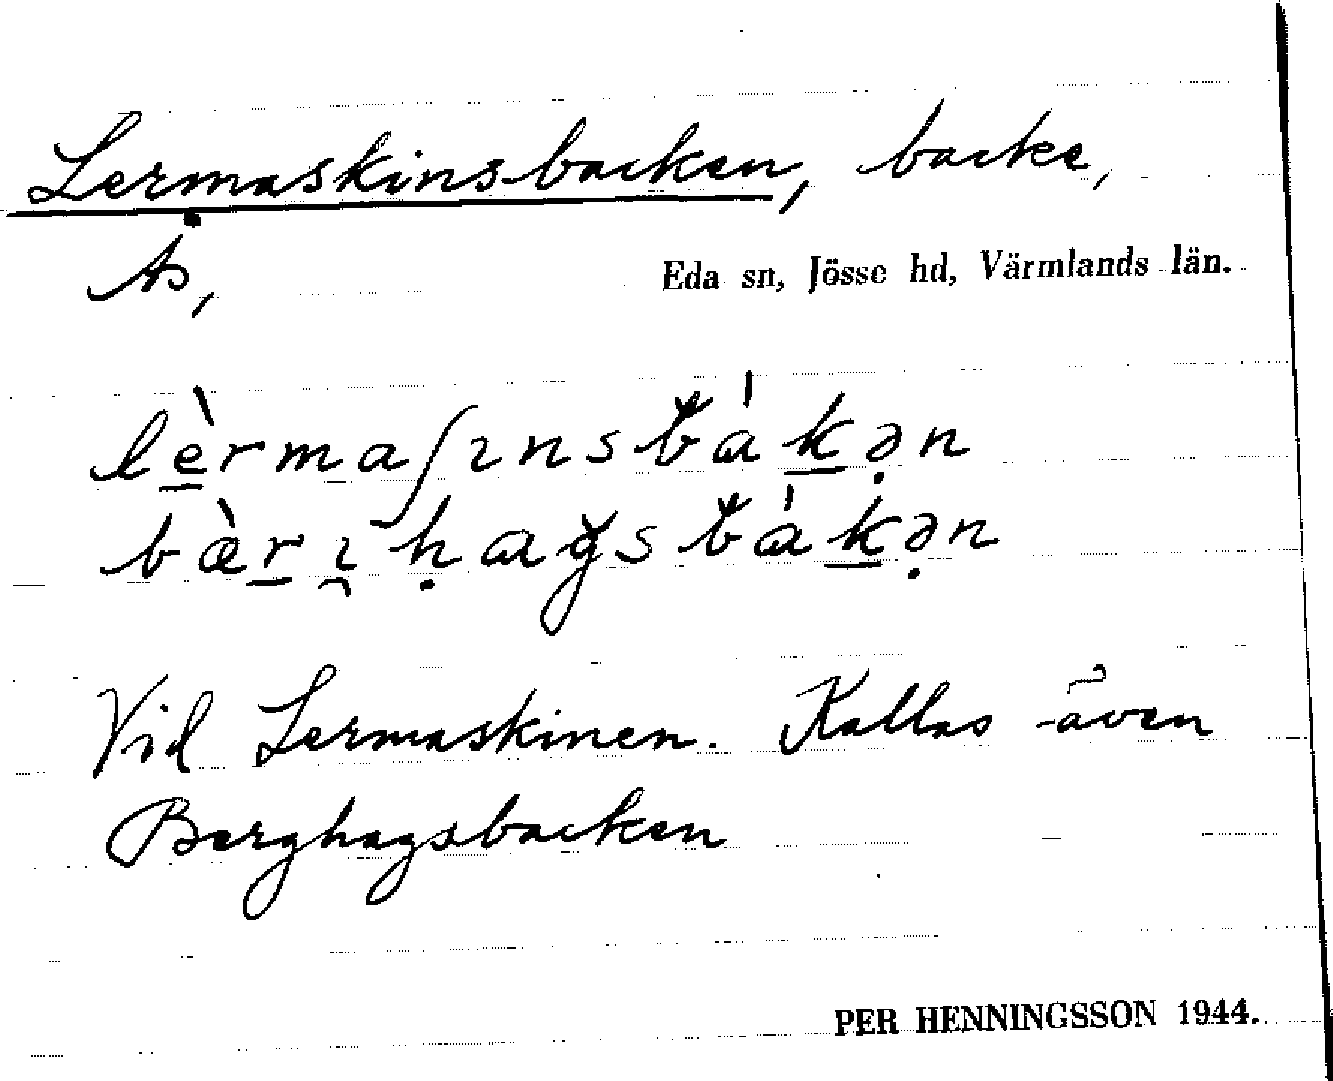 Lermaskinsbacken, backe,
Ås,
Eda sn, Jösse hd, Värmlands län.
lèrmaʃınsbákən
bærıhagsbákən
Vid Lermaskinen. Kallas även
Berghagsbacken
PER HENNINGSSON 1944.